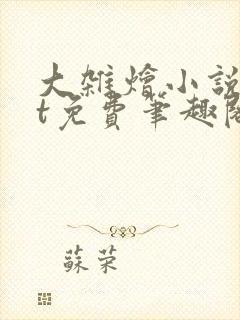 大雜燴小說
t免費筆趣閣
蘇荣